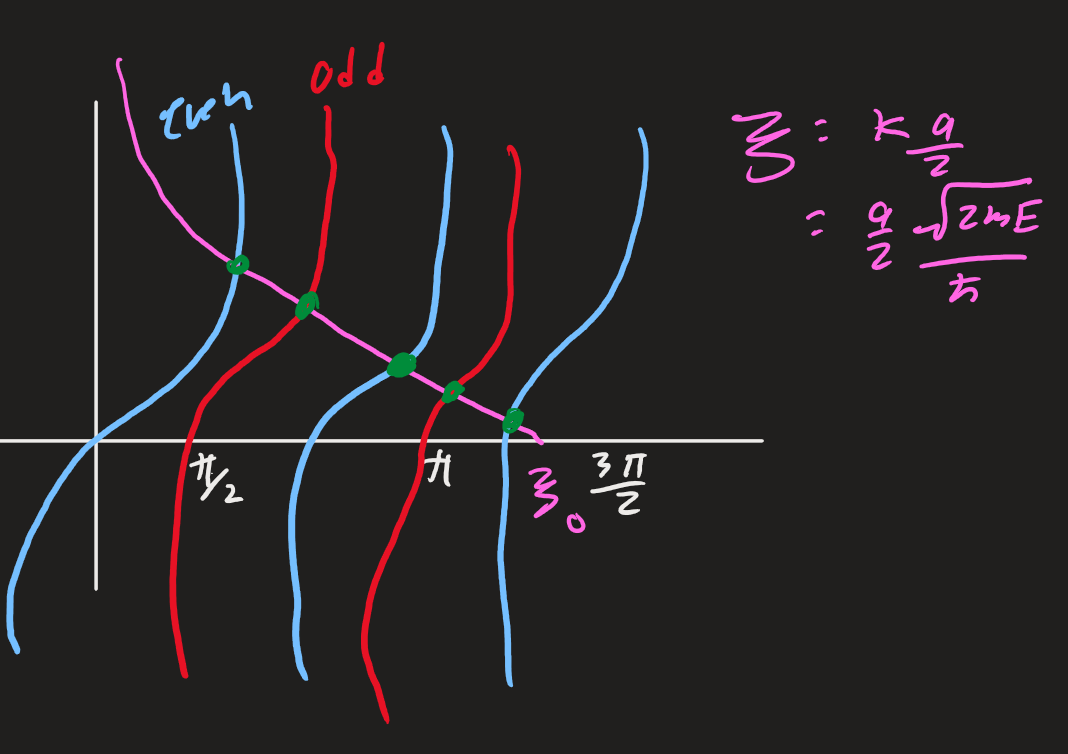 even
odd
ξ = k a/2
= a/2 √2mE/ħ
π/2
π
ξ₀
3π/2